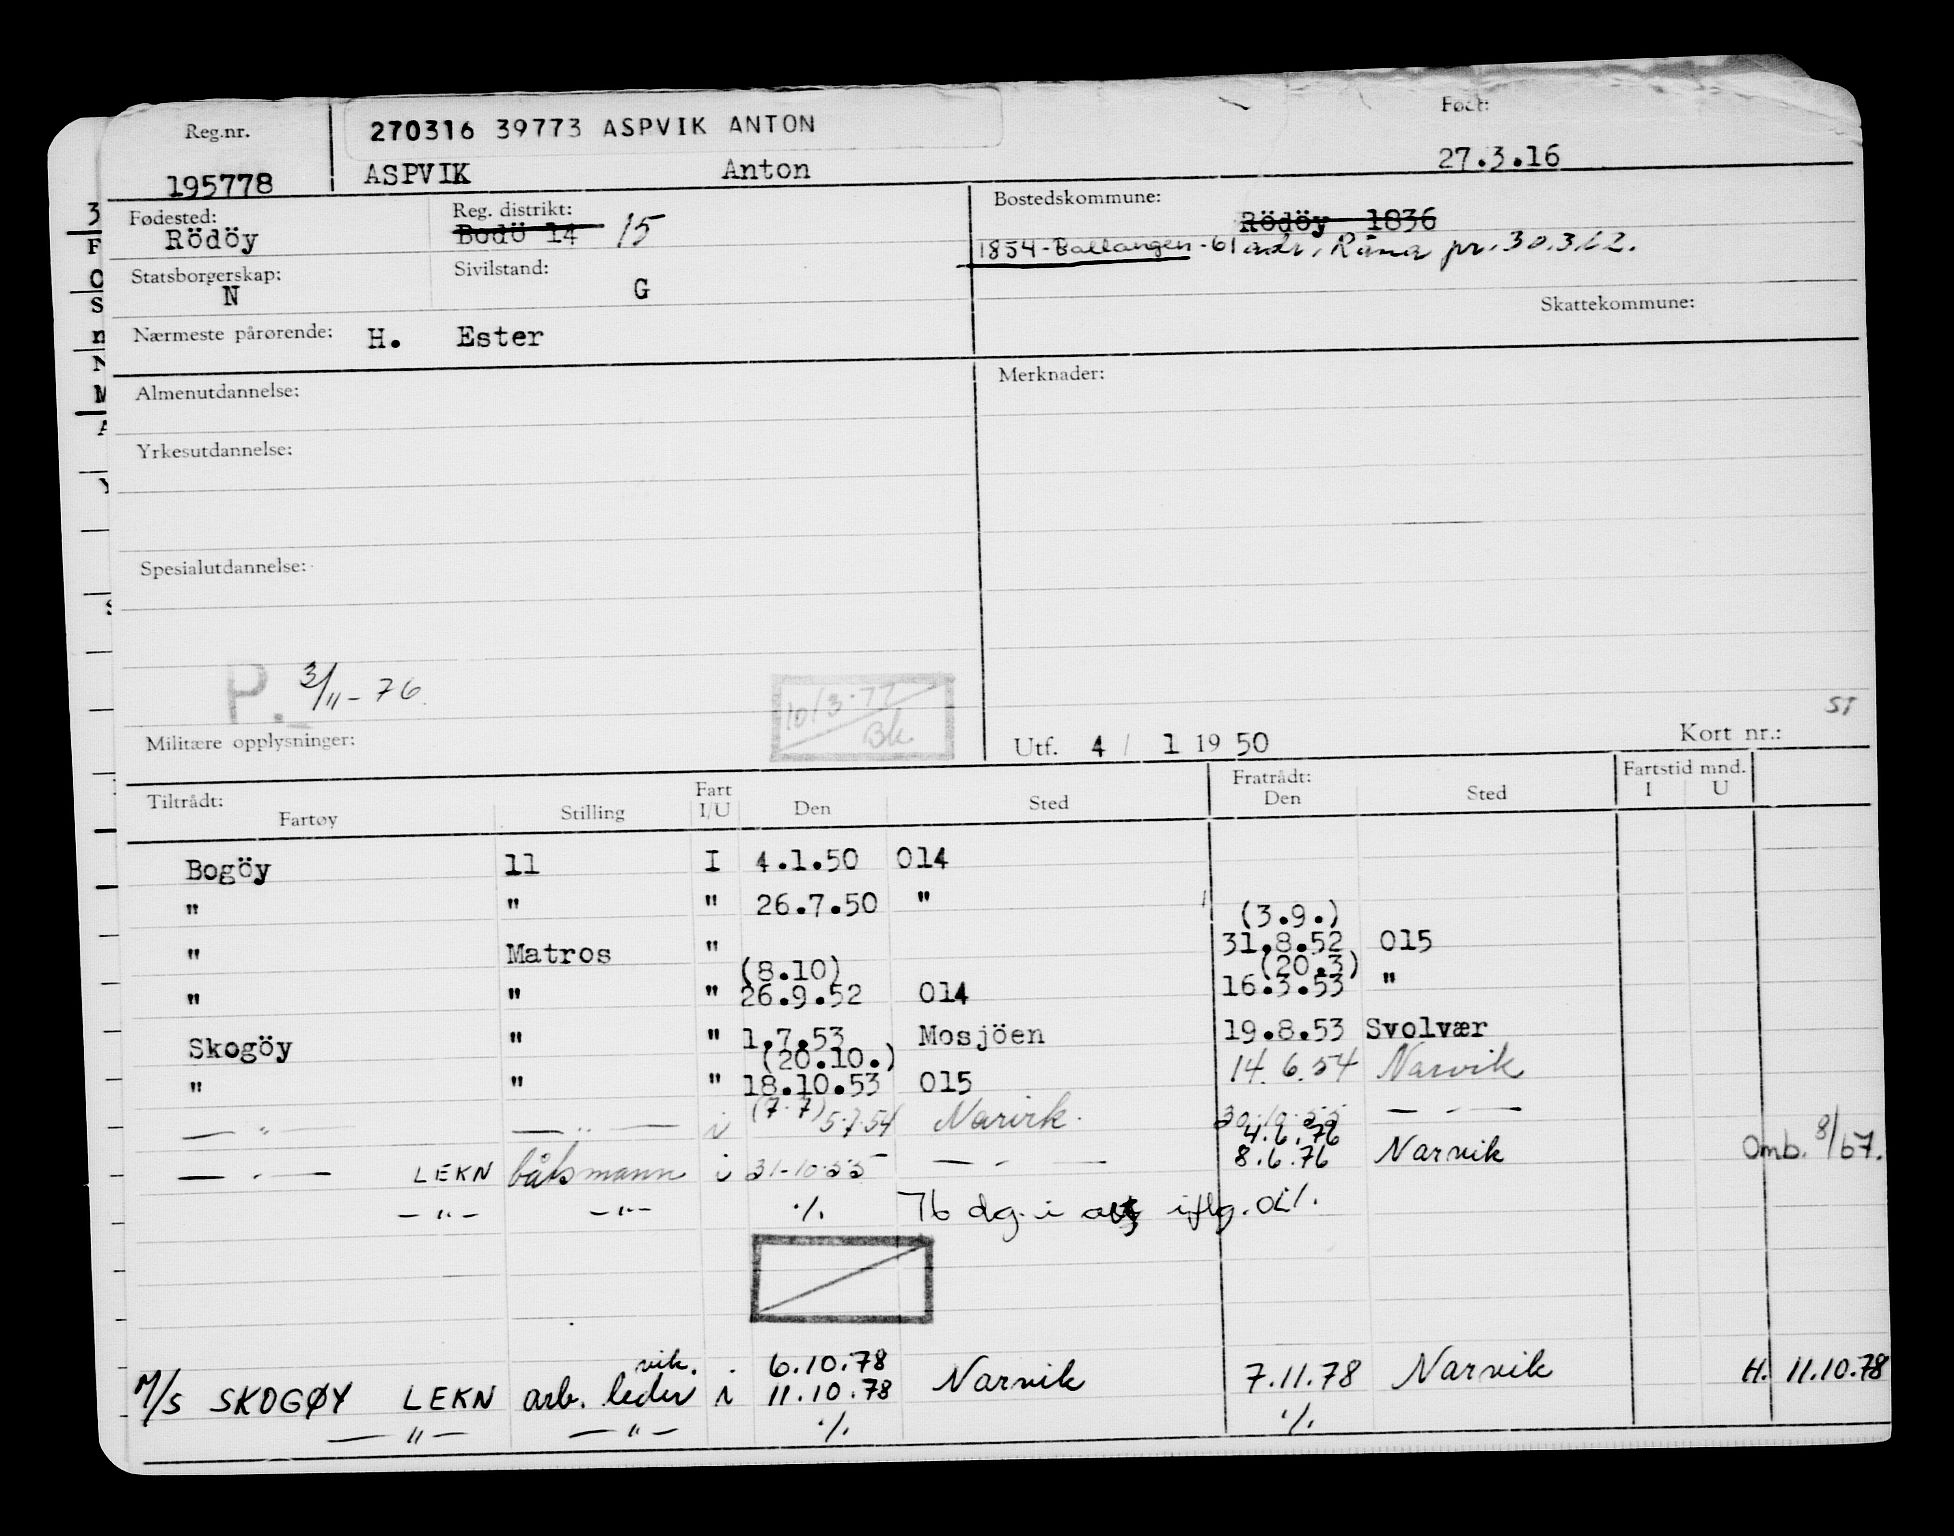 Reg.nr.
270316 39773 ASPVIK ANTON
Født:
195778
ASPVIK Anton
27.3.16
Fødested:
Rödöy
Reg. distrikt:
Bodö 14 15
Bostedskommune:
Rödöy 1836
1854-Ballangen-61 adr. Råna pr. 30.3.62.
Statsborgerskap:
N
Sivilstand:
G
Skattekommune:
Nærmeste pårørende: H. Ester
Almenutdannelse:
Merknader:
Yrkesutdannelse:
Spesialutdannelse:
P. 3/11-76
10/3-77
Bk
ST
Militære opplysninger:
Utf. 4 / 1 19 50
Kort nr.:
Tiltrådt:
Fartøy Stilling Fart I/U Den Sted
Fratrådt:
Den Sted
Fartstid mnd.
I U
Bogöy 11 I 4.1.50 014
" " " 26.7.50 "
(3.9.)
" Matros " 31.8.52 015
(8.10) (20.3)
" " " 26.9.52 014 16.3.53 "
Skogöy " " 1.7.53 Mosjöen 19.8.53 Svolvær
(20.10.)
" " " 18.10.53 015 14.6.54 Narvik
— " — — " — i (7.7) 5.7.54 Narvik. 30.10.55 — " —
4.6.76
— " — LEKN båtsmann i 31-10-55 — " — 8.6.76 Narvik Omb. 8/67.
— " — — " — ·/. 76 dg. i iflg. o·/.
vik. 6.10.78
M/S SKOGØY LEKN arb. leder i 11.10.78 Narvik 7.11.78 Narvik H. 11.10.78
— " — — " — ·/. ·/.